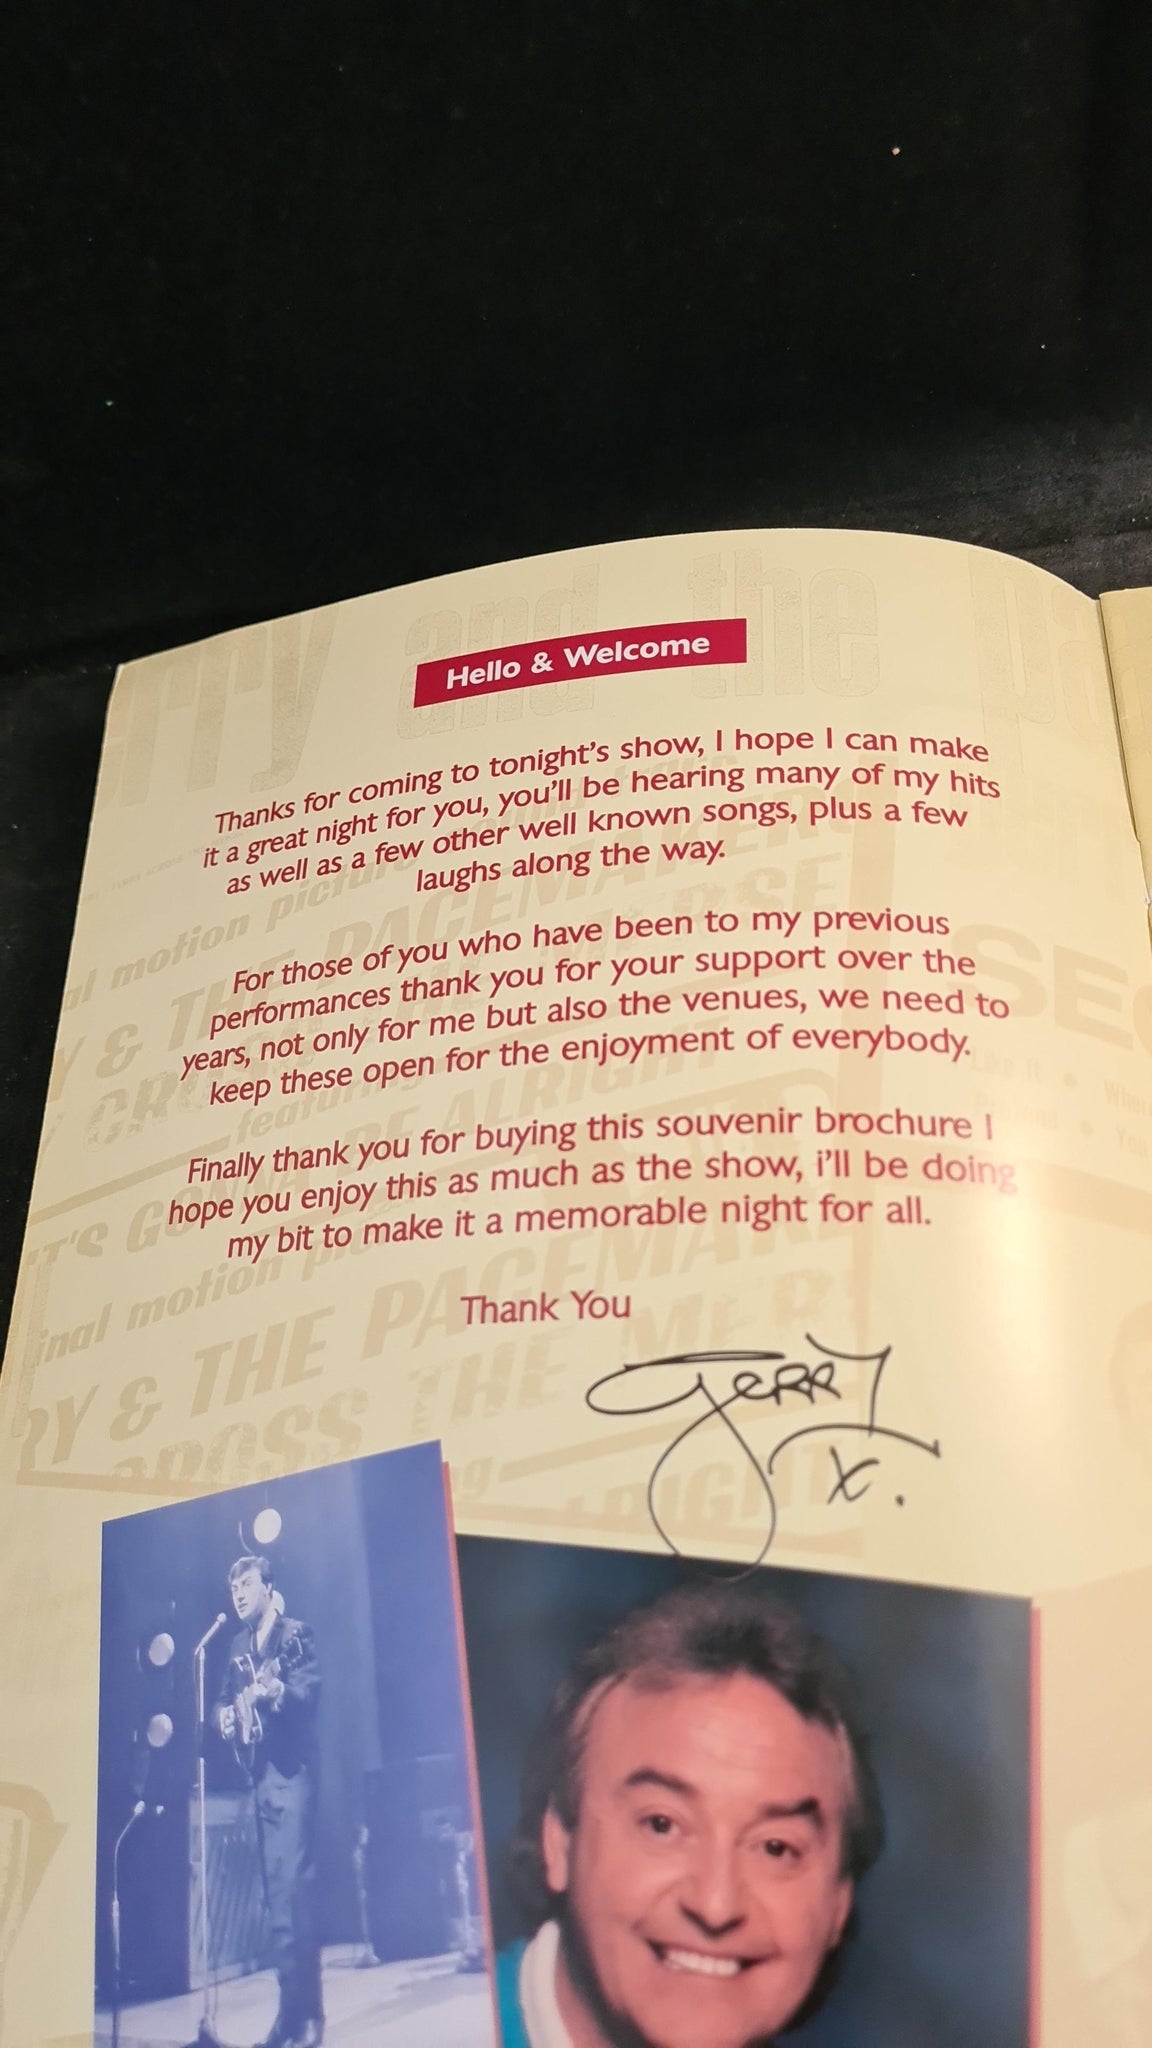 Hello & Welcome
Thanks for coming to tonight's show, I hope I can make
it a great night for you, you'll be hearing many of my hits
as well as a few other well known songs, plus a few
laughs along the way.
For those of you who have been to my previous
performances thank you for your support over the
years, not only for me but also the venues, we need to
keep these open for the enjoyment of everybody.
Finally thank you for buying this souvenir brochure I
hope you enjoy this as much as the show, i'll be doing
my bit to make it a memorable night for all.
Thank You
Gerry
x.
rry and the
motion picture
& THE PACEMAKERS
featuring
IT'S GONNA BE ALRIGHT
inal motion
RY & THE PACEMAKE
CROSS THE MER
RIGHT